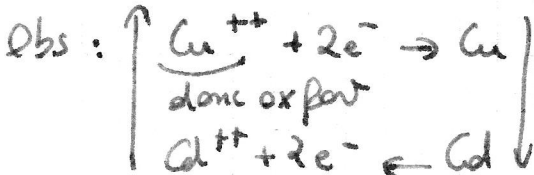 Obs : Cu⁺⁺ + 2e⁻ → Cu
donc ox fort
Cd⁺⁺ + 2e⁻ ← Cd